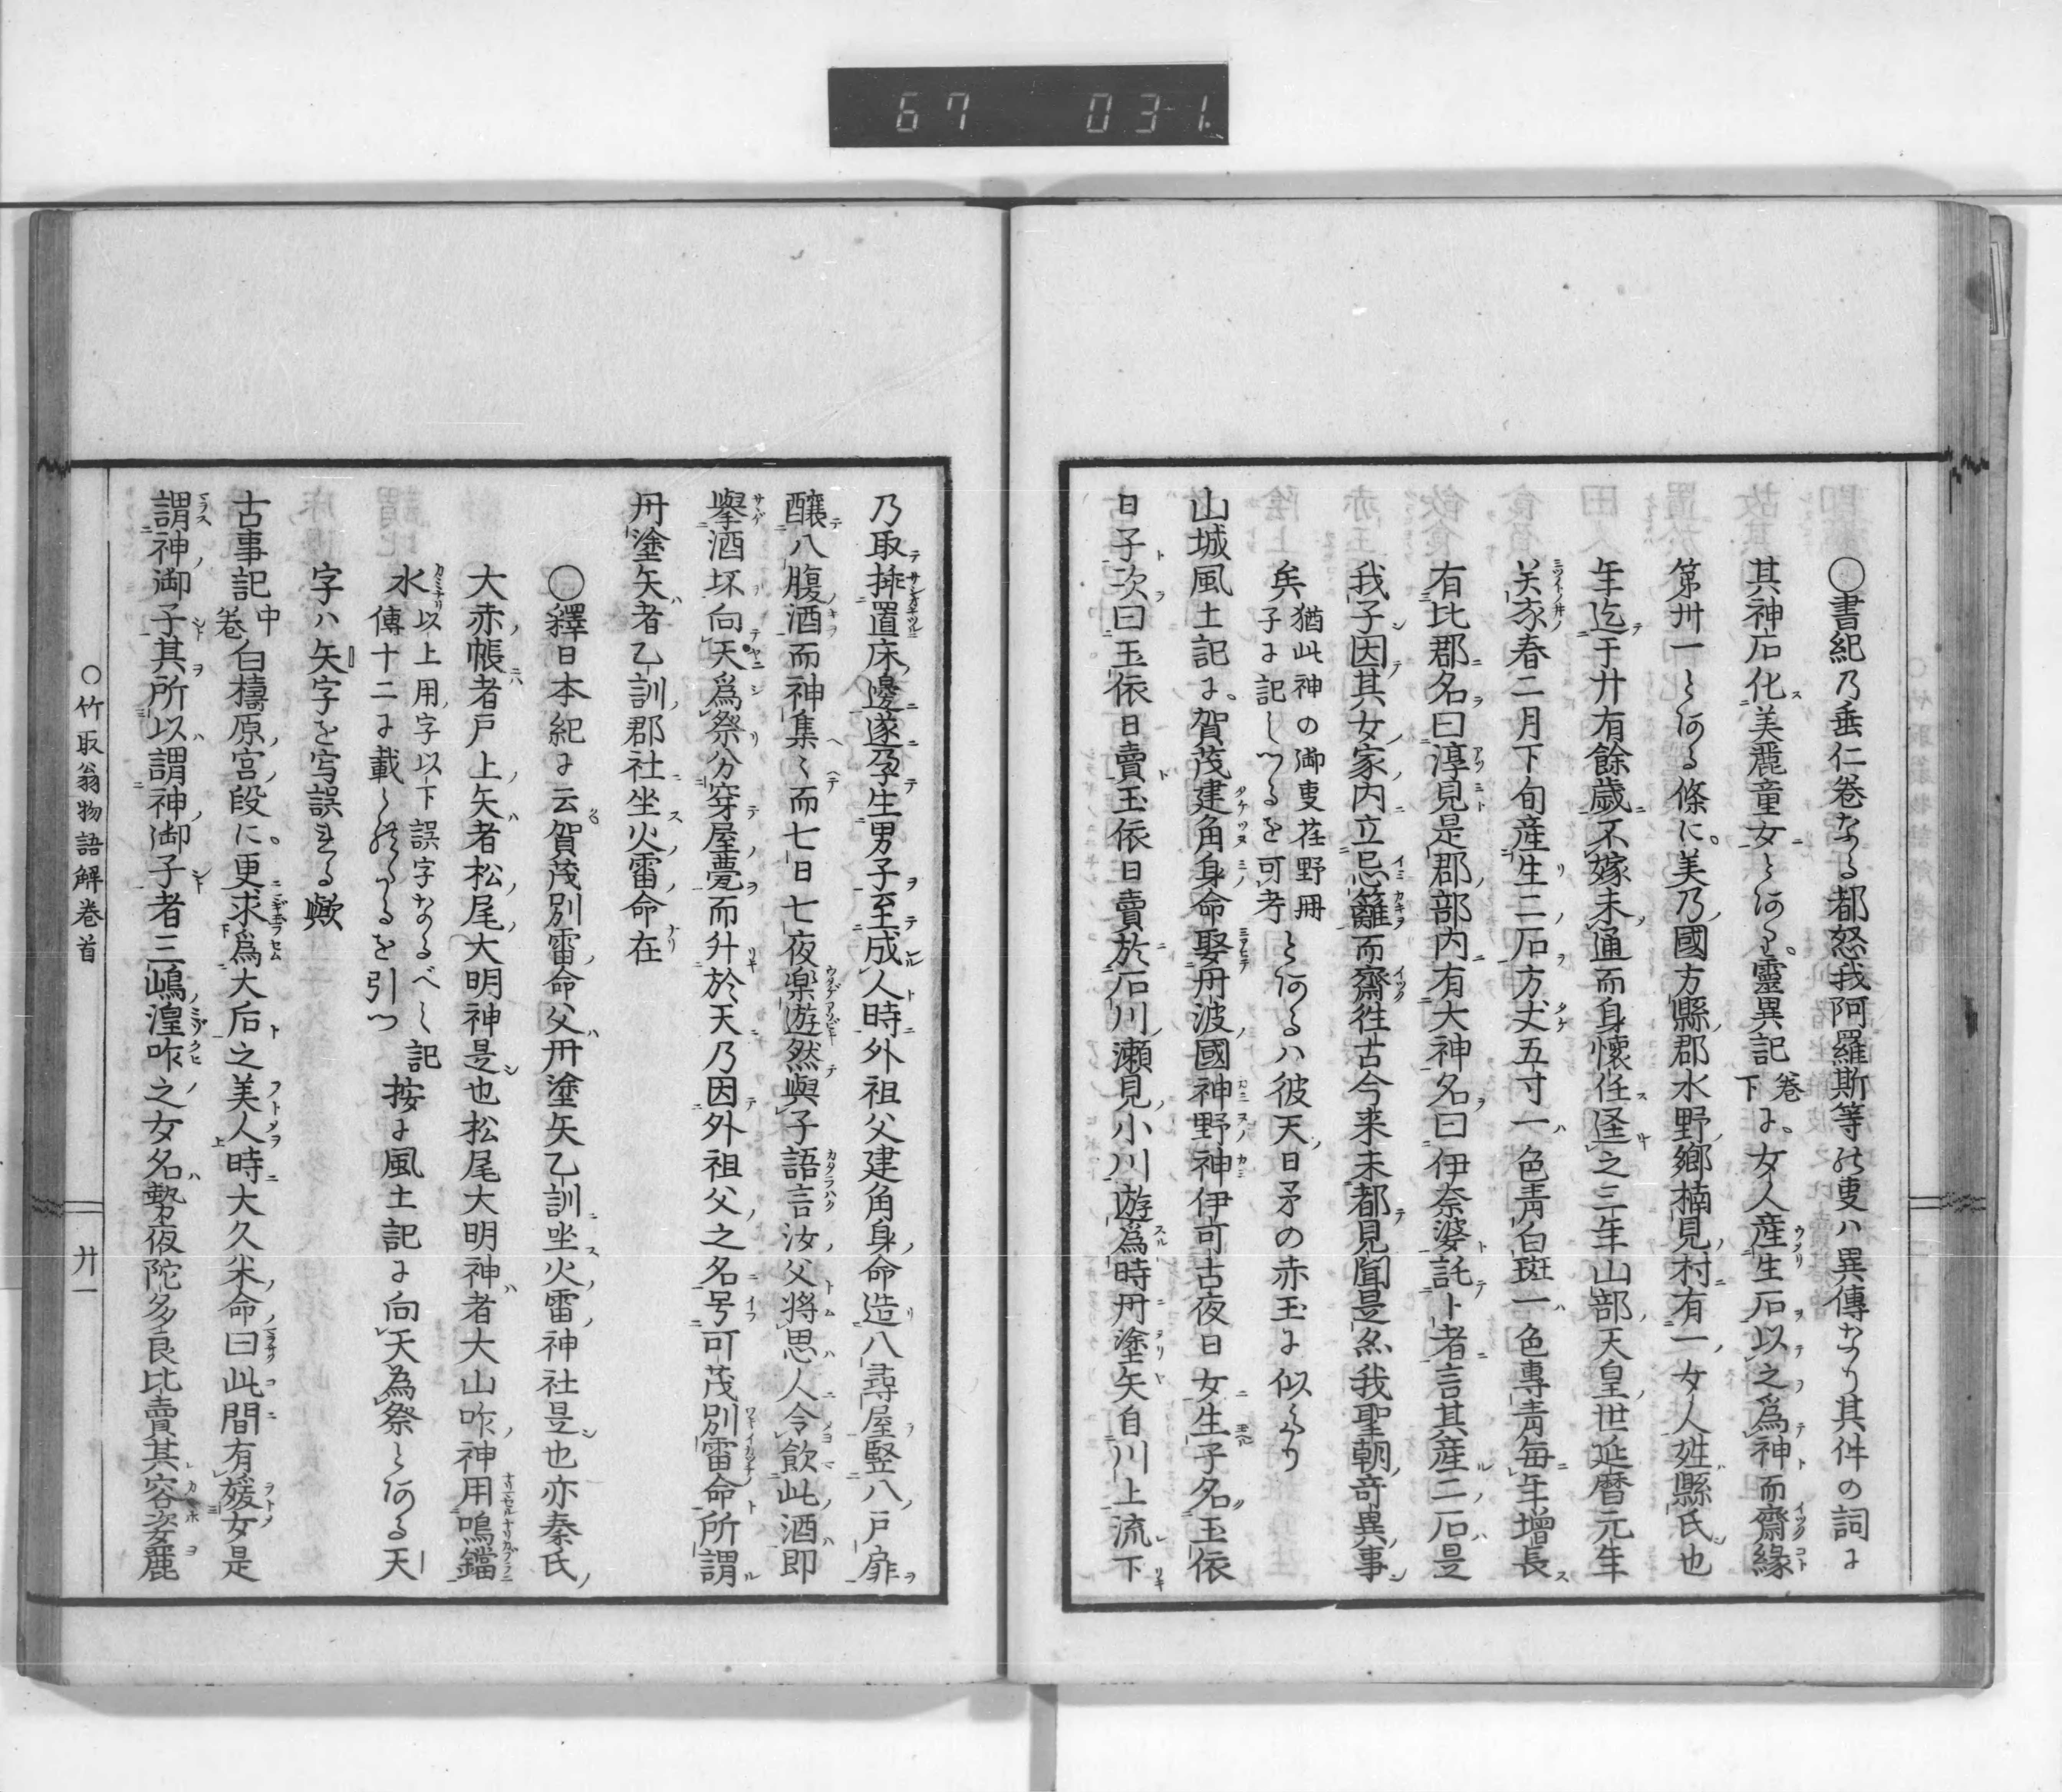 67 031
○書紀乃垂仁巻なる都怒我阿羅斯等の事ハ異傳なり其件の詞に
其神石化美麗童女とあり。靈異記下巻に。女人産生石以之爲神而齋縁
第卅一とある條に。美乃國方縣郡水野郷楠見村有一女人姓縣氏也
年迄于廿有餘歳不嫁未通而身懷任逕之三年山部天皇世延暦元年
癸亥春二月下旬産生二石方丈五寸一色青白斑一色專青毎年増長
有比郡名曰淳見是郡部内有大神名曰伊奈婆託卜者言其産二石是
我子因其女家内立忌籬而齋徃古今来未都見聞是亦我聖朝竒異事
矣猶此神の御事荏野冊子に記しつるを可考とあるハ彼天日矛の赤玉に似たり
山城風土記に。賀茂建角身命娶丹波國神野神伊可古夜日女生子名玉依
日子次曰玉依日賣玉依日賣於石川瀬見小川遊爲時丹塗矢自川上流下
乃取挿置床邊遂孕生男子至成人時外祖父建角身命造八尋屋竪八戸扉
醸八腹酒而神集々而七日七夜樂遊然與子語言汝父將思人令飲此酒即
擧酒坏向天爲祭分穿屋甍而升於天乃因外祖父之名号可茂別雷命所謂
丹塗矢者乙訓郡社坐火雷命在
○釋日本紀に云賀茂別雷命父丹塗矢乙訓坐火雷神社是也亦秦氏
大赤帳者戸上矢者松尾大明神是也松尾大明神者大山咋神用鳴鏑
水以上用字以下誤字なるべし記傳十二に載られたるを引つ按に風土記に向天為祭とある天
字ハ矢字を写誤れる歟
古事記中巻白檮原宮段に。更求爲大后之美人時大久米命曰此間有媛女是
謂神御子其所以謂神御子者三嶋湟咋之女名勢夜陀多良比賣其容姿麗
○竹取翁物語解巻首 廿一